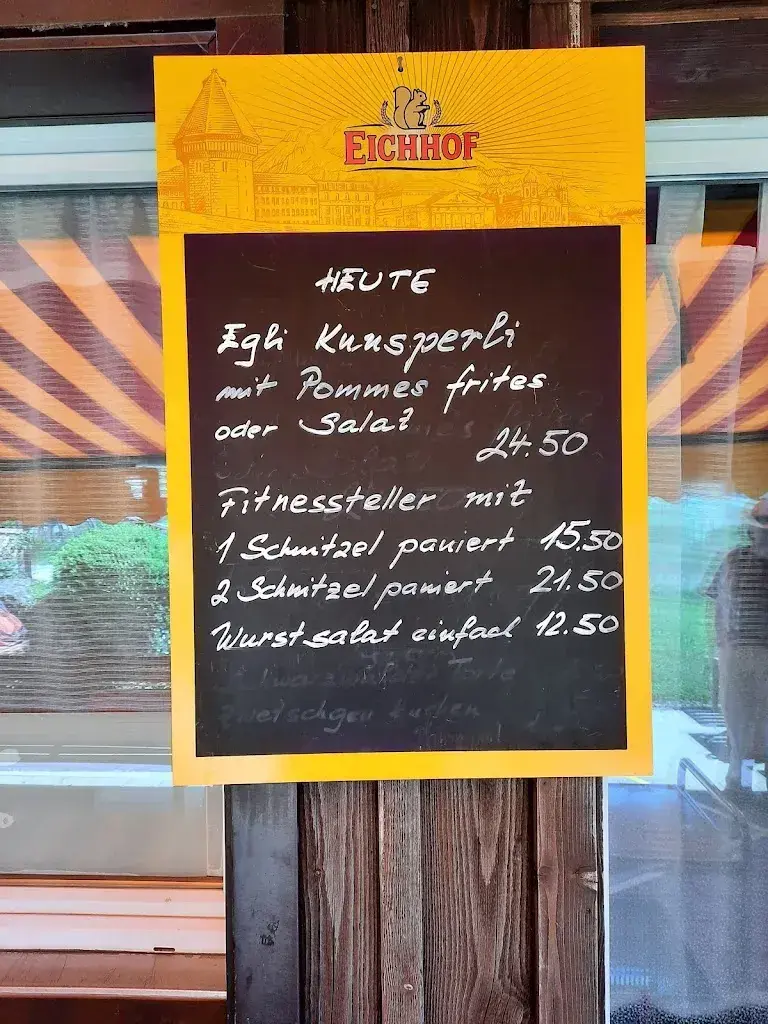 EICHHOF
HEUTE
Egli Knusperli
mit Pommes frites
oder Salat
24.50
Fitnessteller mit
1 Schnitzel paniert 15.50
2 Schnitzel paniert 21.50
Wurstsalat einfach 12.50
Schwarzwälder Torte
Zwetschgen kuchen